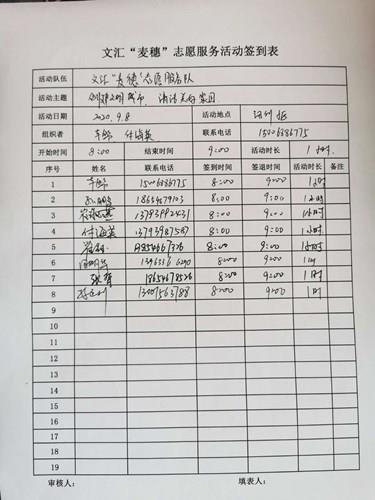 文汇“麦穗”志愿服务活动签到表
活动队伍 文汇“麦穗”志愿服务队
活动主题 创建文明城市，清洁美好家园
活动日期 2020.9.8 活动地点
组织者 联系电话 15006386775
开始时间 8:00 结束时间 9:00 活动时长 1小时
序号 姓名 联系电话 签到时间 签退时间 活动时长 备注
1 15006386775 8:00 9:00 1小时
2 18654679103 8:00 9:00 1小时
3 13793992431 8:00 9:00 1小时
4 13793987587 8:00 9:00 1小时
5 8:00 9:00 1小时
6 8:00 9:00 1时
7 8:00 9:00 1时
8 13407563788 8:00 9:00 1时
9
10
11
12
13
14
15
16
17
18
19
审核人： 填表人：